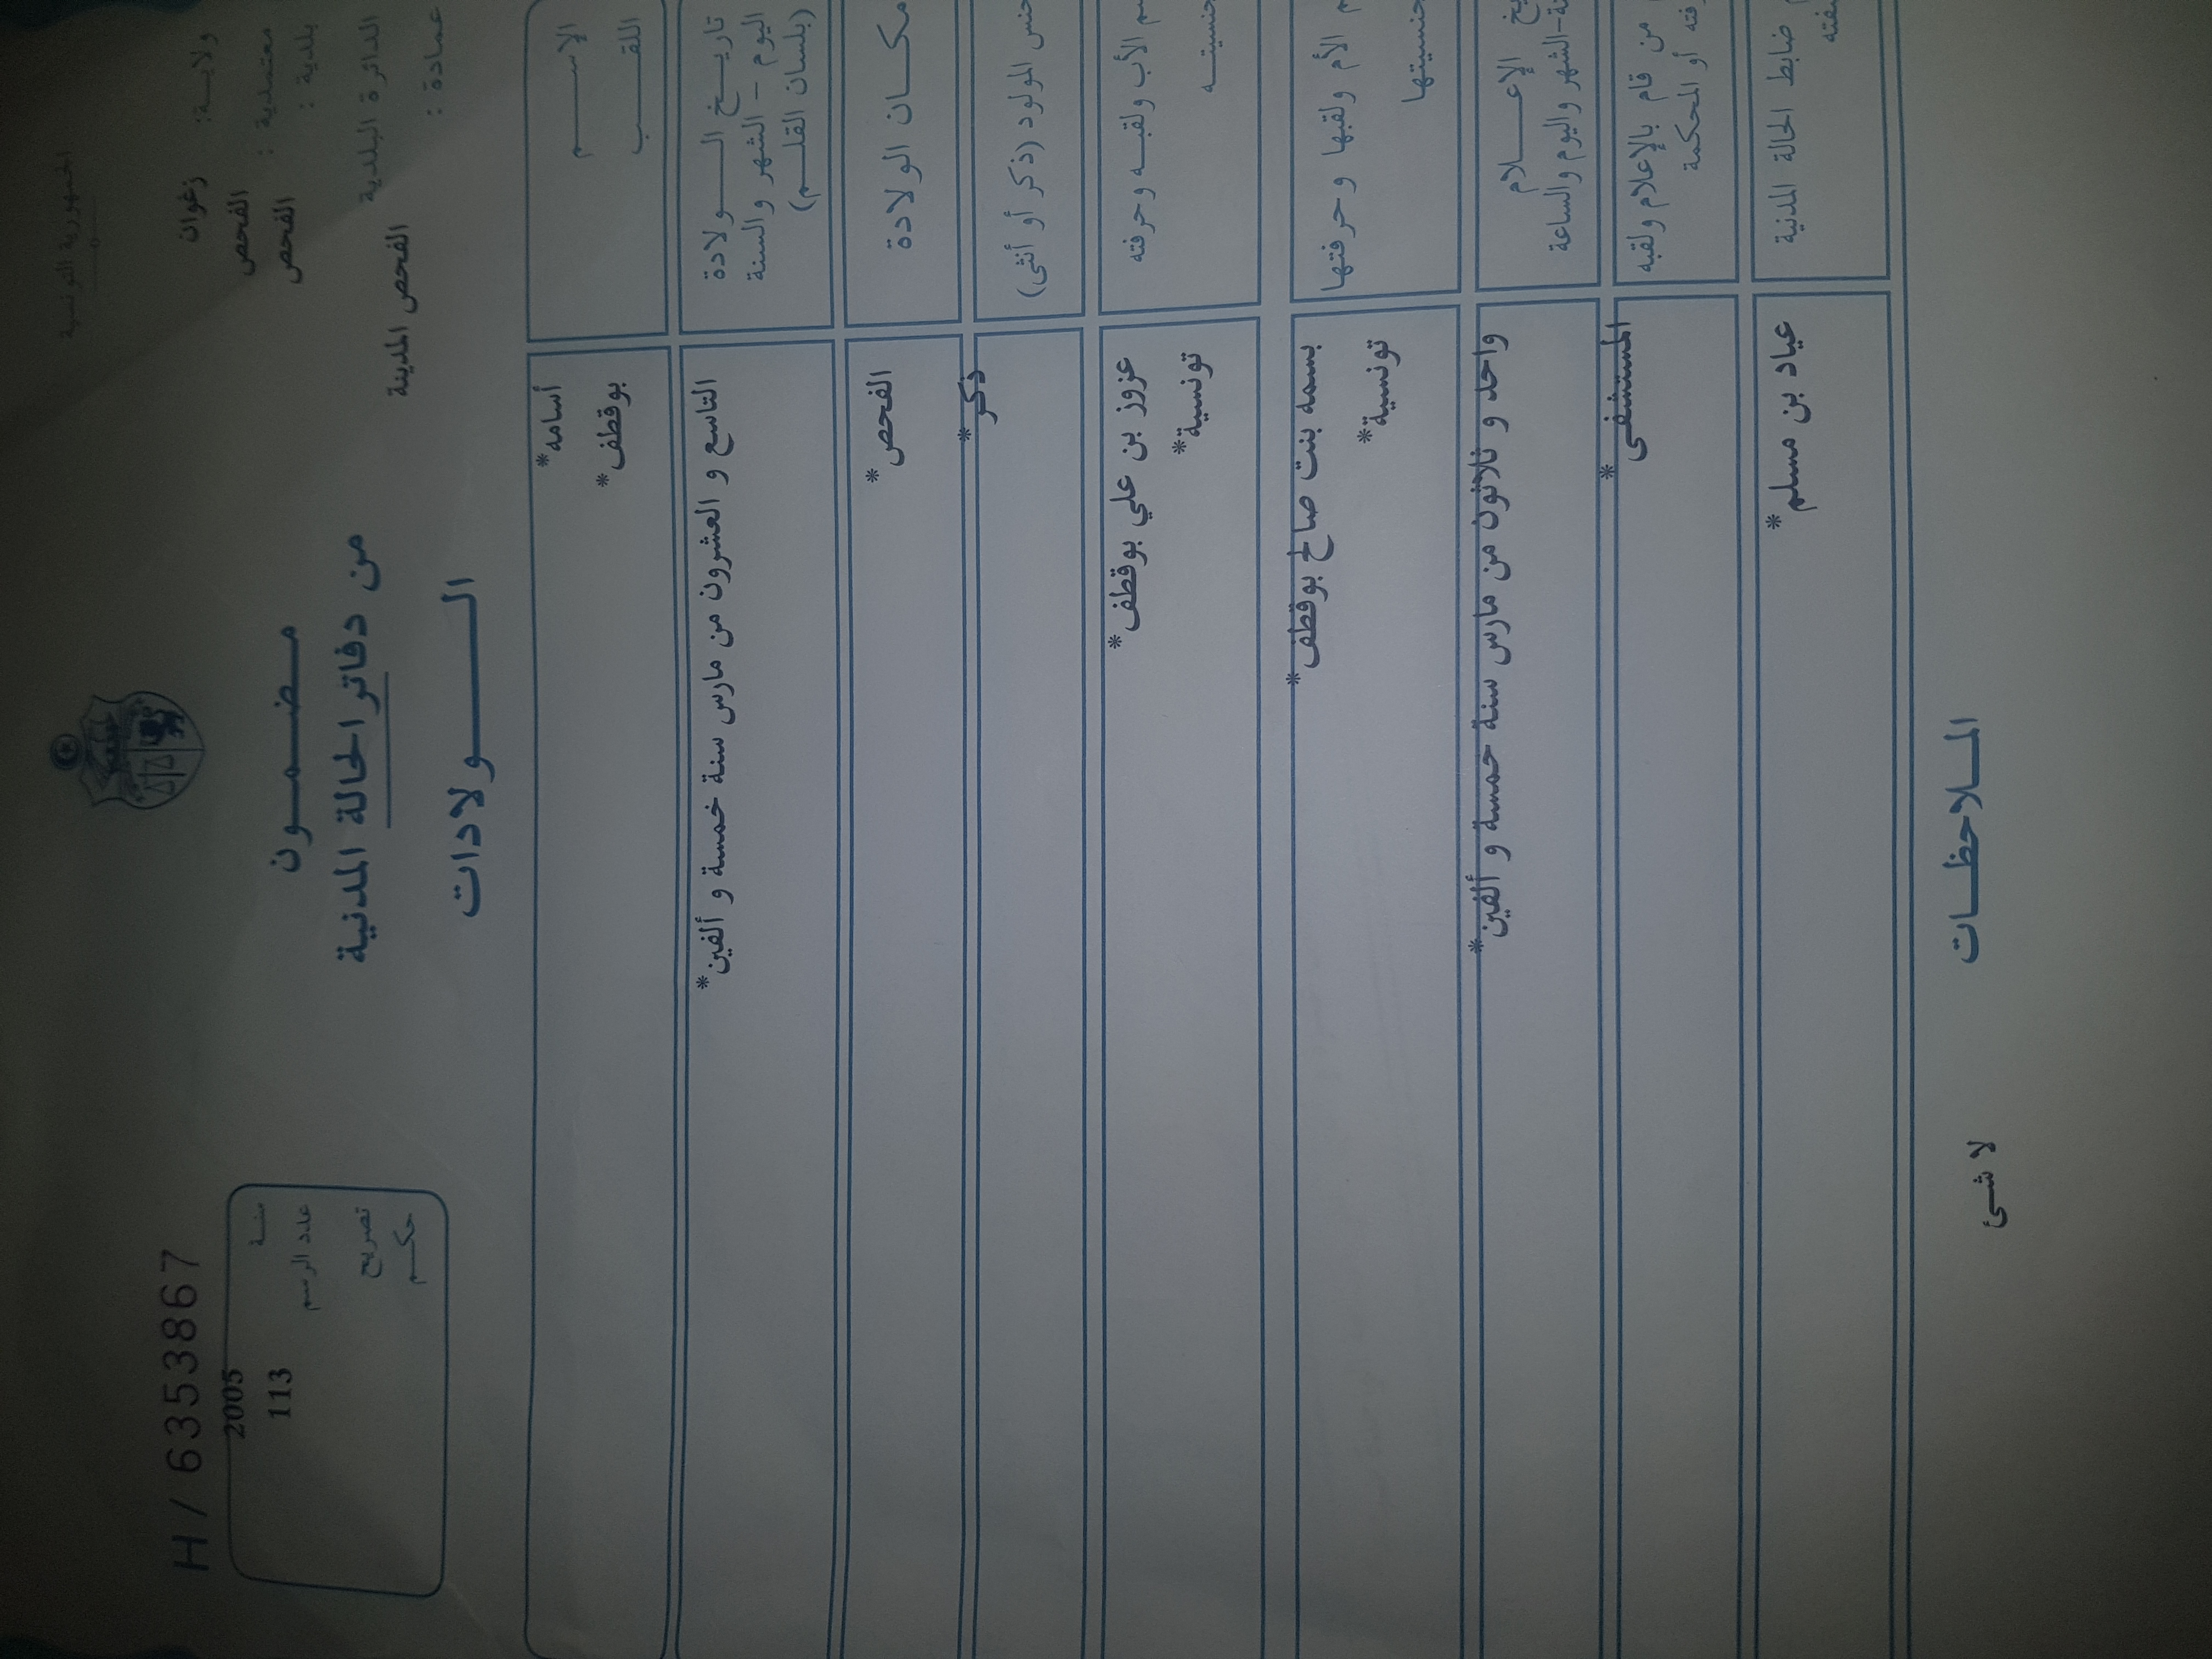 الجمهورية التونسية
ولايـة: زغوان
معتمدية : الفحص
بلدية : الفحص
الدائرة البلدية
الفحص المدينة
عمادة :
مـضـمـون
من دفاتر الحالة المدنية
الـولادات
H / 6353867
سنـة 2005
عدد الرسم 113
تصريح
حكـم
الإسـم
أسامه*
اللقـب
بوقطف*
تاريـخ الـولادة
اليوم - الشهر والسنة
(بلسان القلـم)
التاسع و العشرون من مارس سنة خمسة و ألفين*
مكـان الولادة
الفحص*
جنس المولود (ذكر أو أنثى)
ذكر*
الأب ولقبـه وحرفته
جنسيتـه
عزوز بن علي بوقطف*
تونسية*
الأم ولقبها وحرفتها
جنسيتها
بسمه بنت صالح بوقطف*
تونسية*
الإعـلام
الشهر واليوم والساعة
واحد و ثلاثون من مارس سنة خمسة و ألفين*
من قام بالإعلام ولقبه
أو المحكمة
المستشفى*
ضابط الحالة المدنية
عياد بن مسلم*
المـلاحظـات
لا شئ